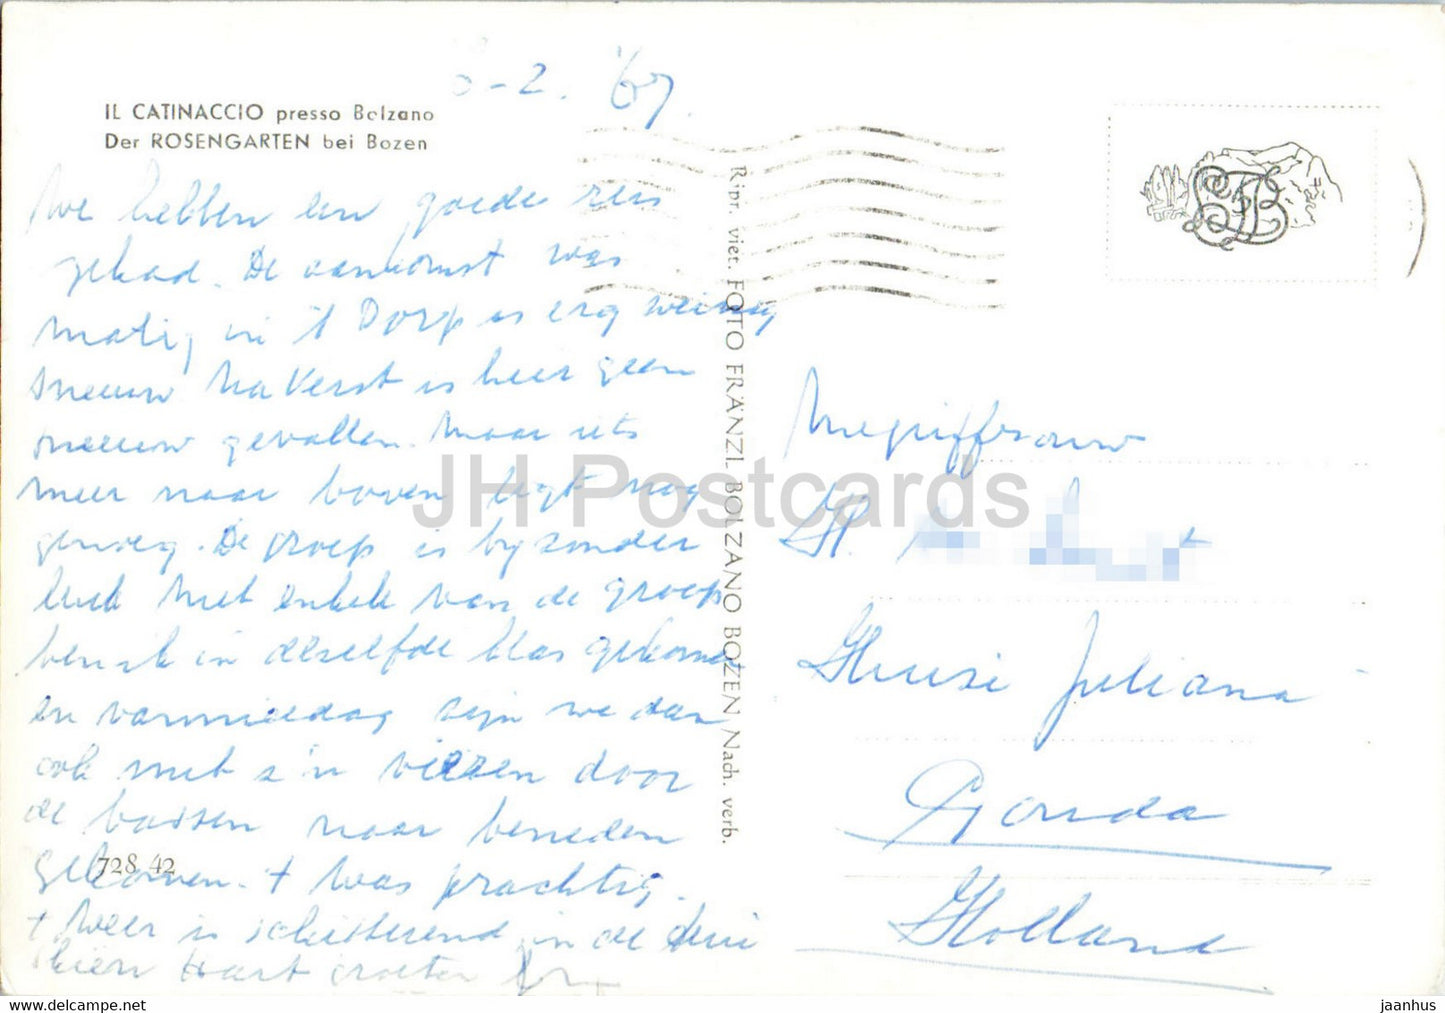 IL CATINACCIO presso Bolzano
Der ROSENGARTEN bei Bozen
-2. '67.
We hebben een goede reis
gehad. De aankomst was
matig in 't Dorp is erg weinig
sneeuw na Kerst is hier geen
sneeuw gevallen. Maar iets
meer naar boven ligt nog
genoeg. De groep is byzonder
leuk met enkele van de groep
ben ik in dezelfde klas gekomen
en vanmiddag zijn we dan
ook met z'n vieren door
de bossen naar beneden
gekomen. 't was prachtig.
't Weer is schitterend in de
hart groeten
728 42
Ripr. viet. FOTO FRÄNZL BOLZANO BOZEN Nach. verb.
FB
Mejuffrouw
H.
Huize Juliana
Gouda
Holland
JH Postcards
https://jhpostcards.com
jaanhus